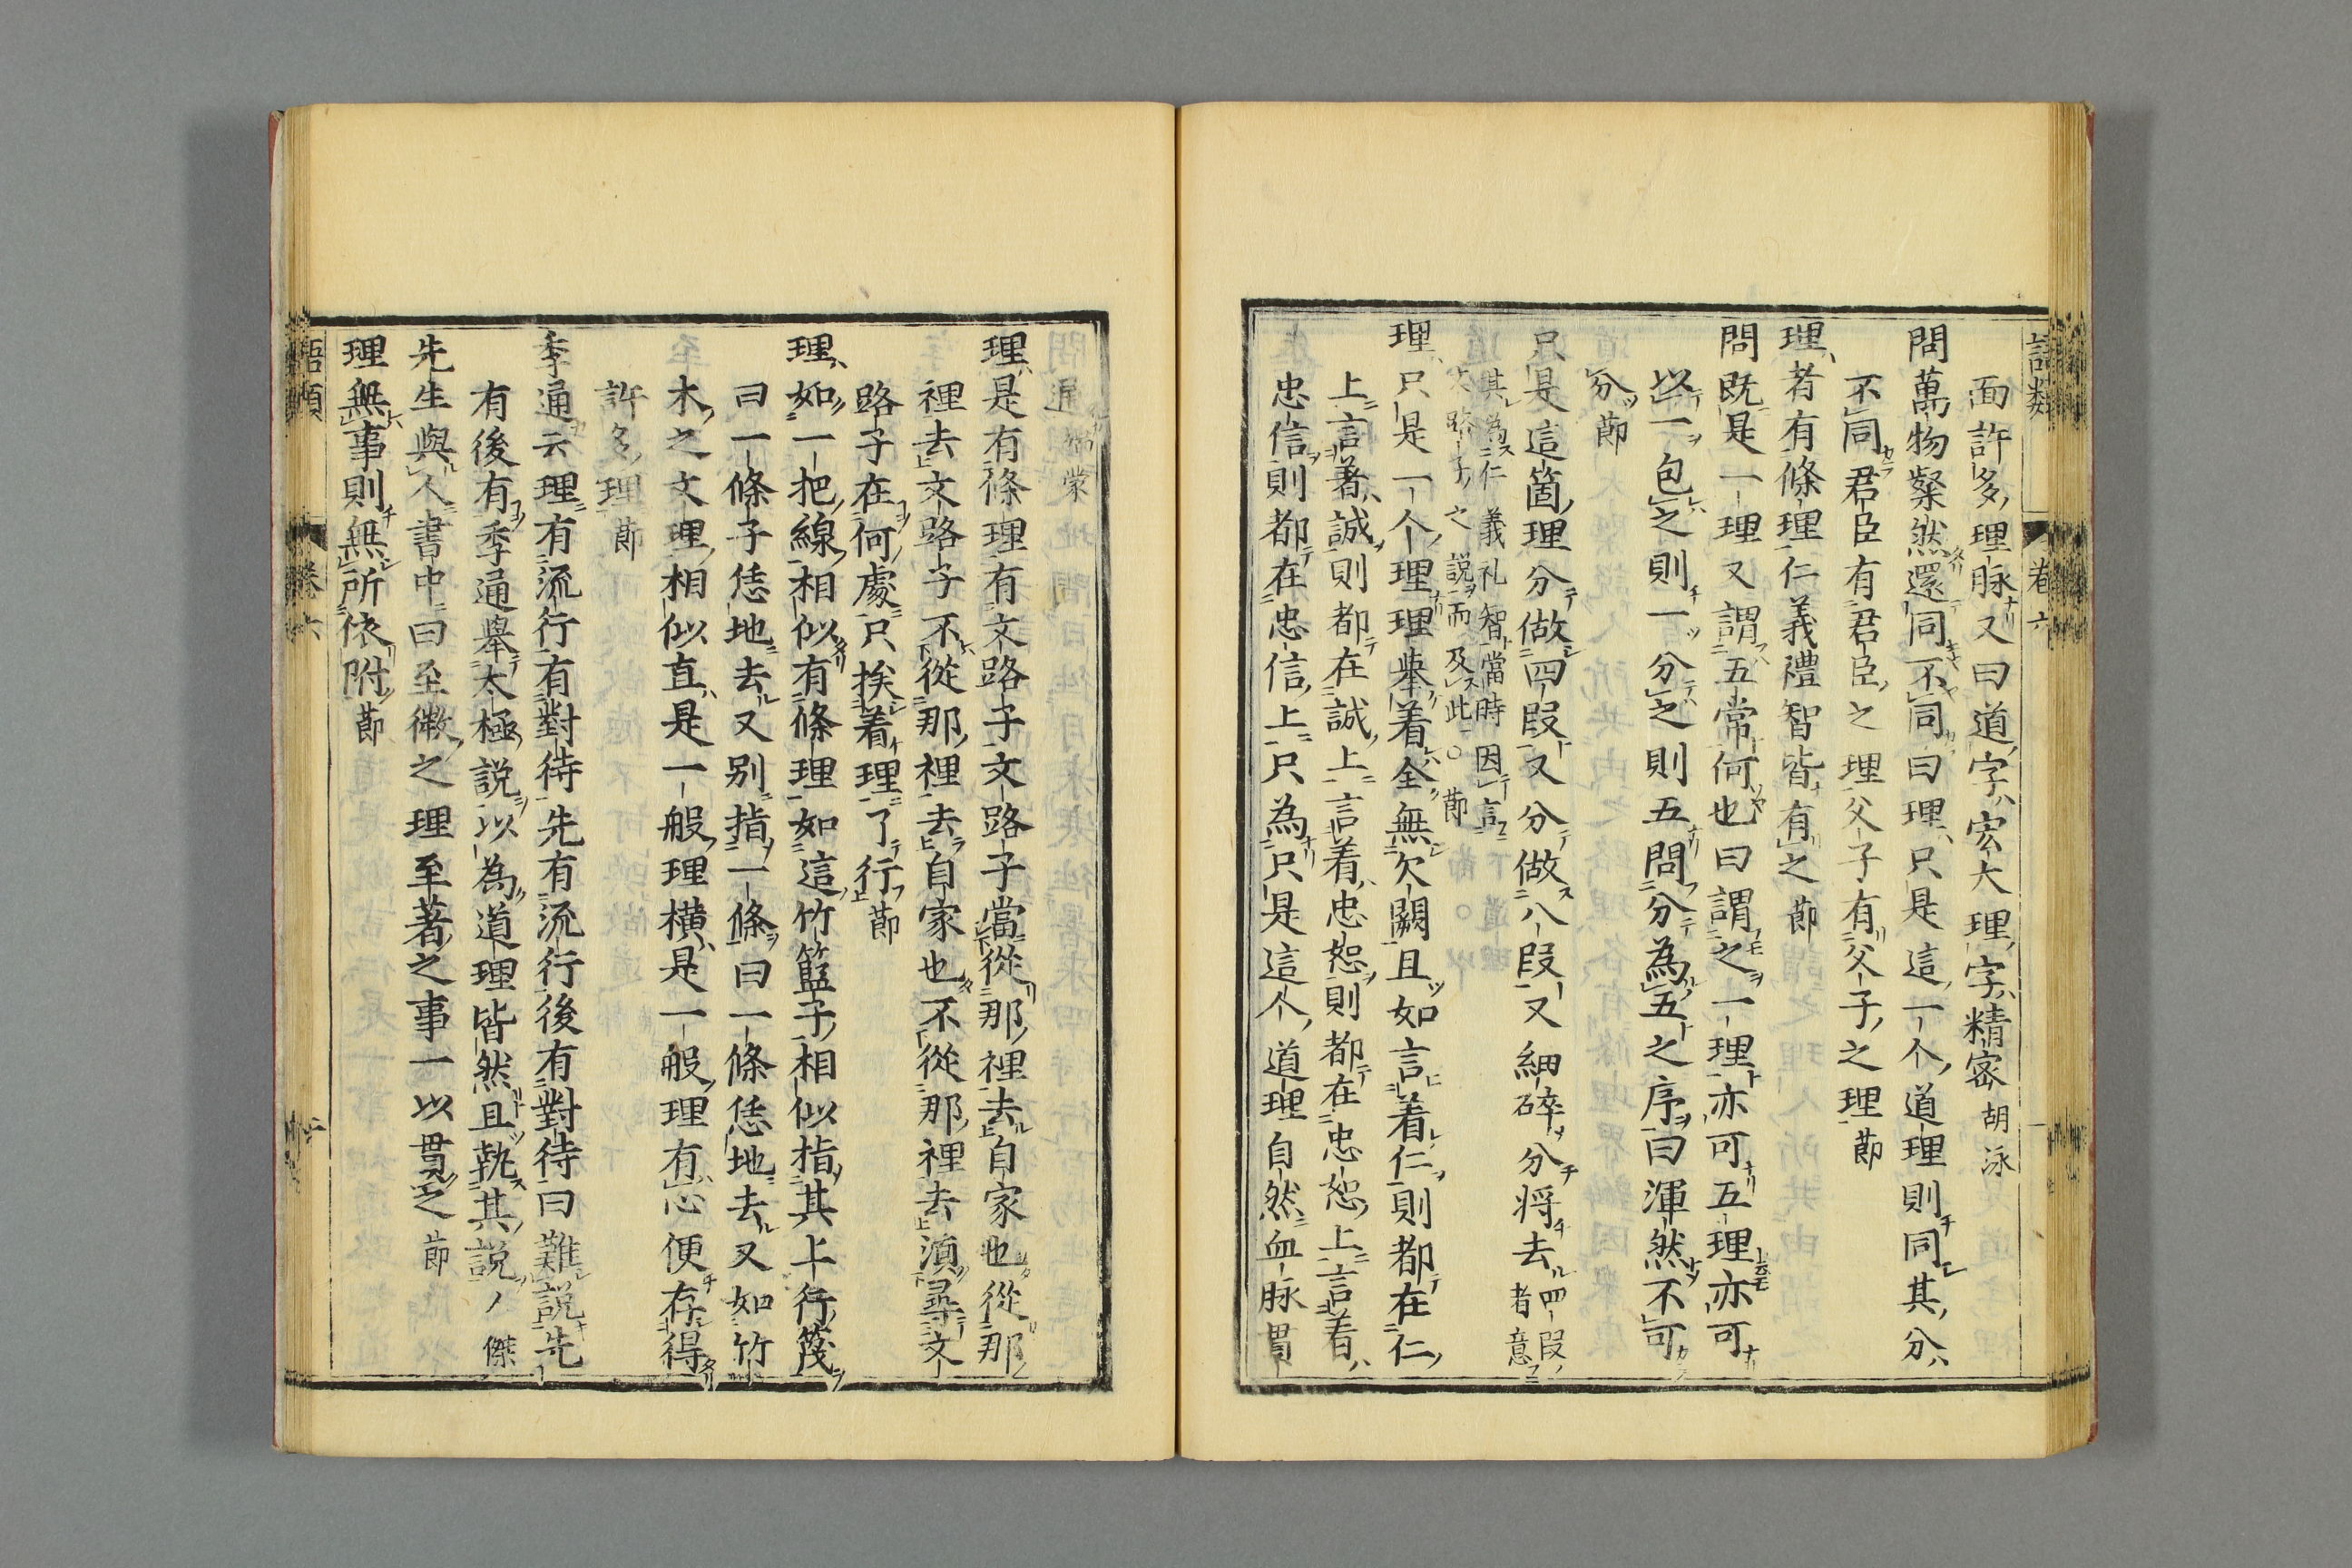 語類 卷六
面許多理脉又曰道字宏大理字精密 胡泳
問萬物粲然還同不同曰理只是這一个道理則同其分
不同君臣有君臣之理父子有父子之理 節
理者有條理仁義禮智皆有之 節
問既是一理又謂五常何也曰謂之一理亦可五理亦可
以一包之則一分之則五問分為五之序曰渾然不可
分 節
只是這箇理分做四段又分做八段又細碎分將去 四段者意
其為仁義礼智當時因言
文路子之說而及此○ 節
理只是一个理理舉着全無欠闕且如言着仁則都在仁
上言著誠則都在誠上言着忠恕則都在忠恕上言着
忠信則都在忠信上只為只是這个道理自然血脉貫
通 端蒙
理是有條理有文路子文路子當從那裡去自家也從那
裡去文路子不從那裡去自家也不從那裡去湏尋文
路子在何處只挨着理了行 節
理如一把線相似有條理如這竹籃子相似指其上行篾
曰一條子恁地去又別指一條曰一條恁地去又如竹
木之文理相似直是一般理橫是一般理有心便存得
許多理 節
季通云理有流行有對待先有流行後有對待曰難說先
有後有季通舉太極說以為道理皆然且執其說 人傑
先生與人書中曰至微之理至著之事一以貫之 節
理無事則無所依附 節
語類 卷六 二